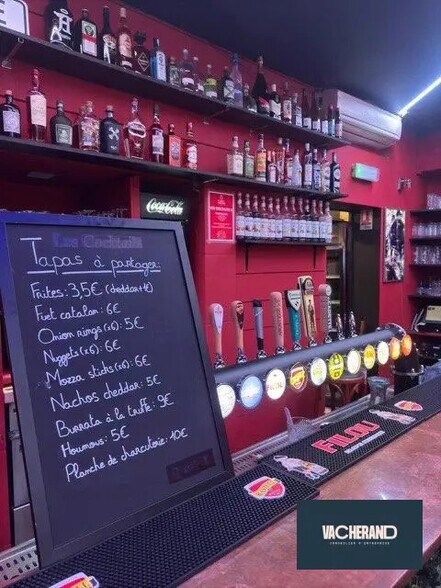 Coca-Cola
Les Cocktails
Tapas à partager:
Frites: 3,5€ (cheddar+1€)
Fuet catalan: 6€
Onion rings (x6): 5€
Nuggets (x6): 6€
Mozza sticks (x6): 6€
Nachos cheddar: 5€
Burrata à la truffe: 9€
Houmous: 5€
Planche de charcuterie: 10€
FILOU
VACHERAND
IMMOBILIER D'ENTREPRISE